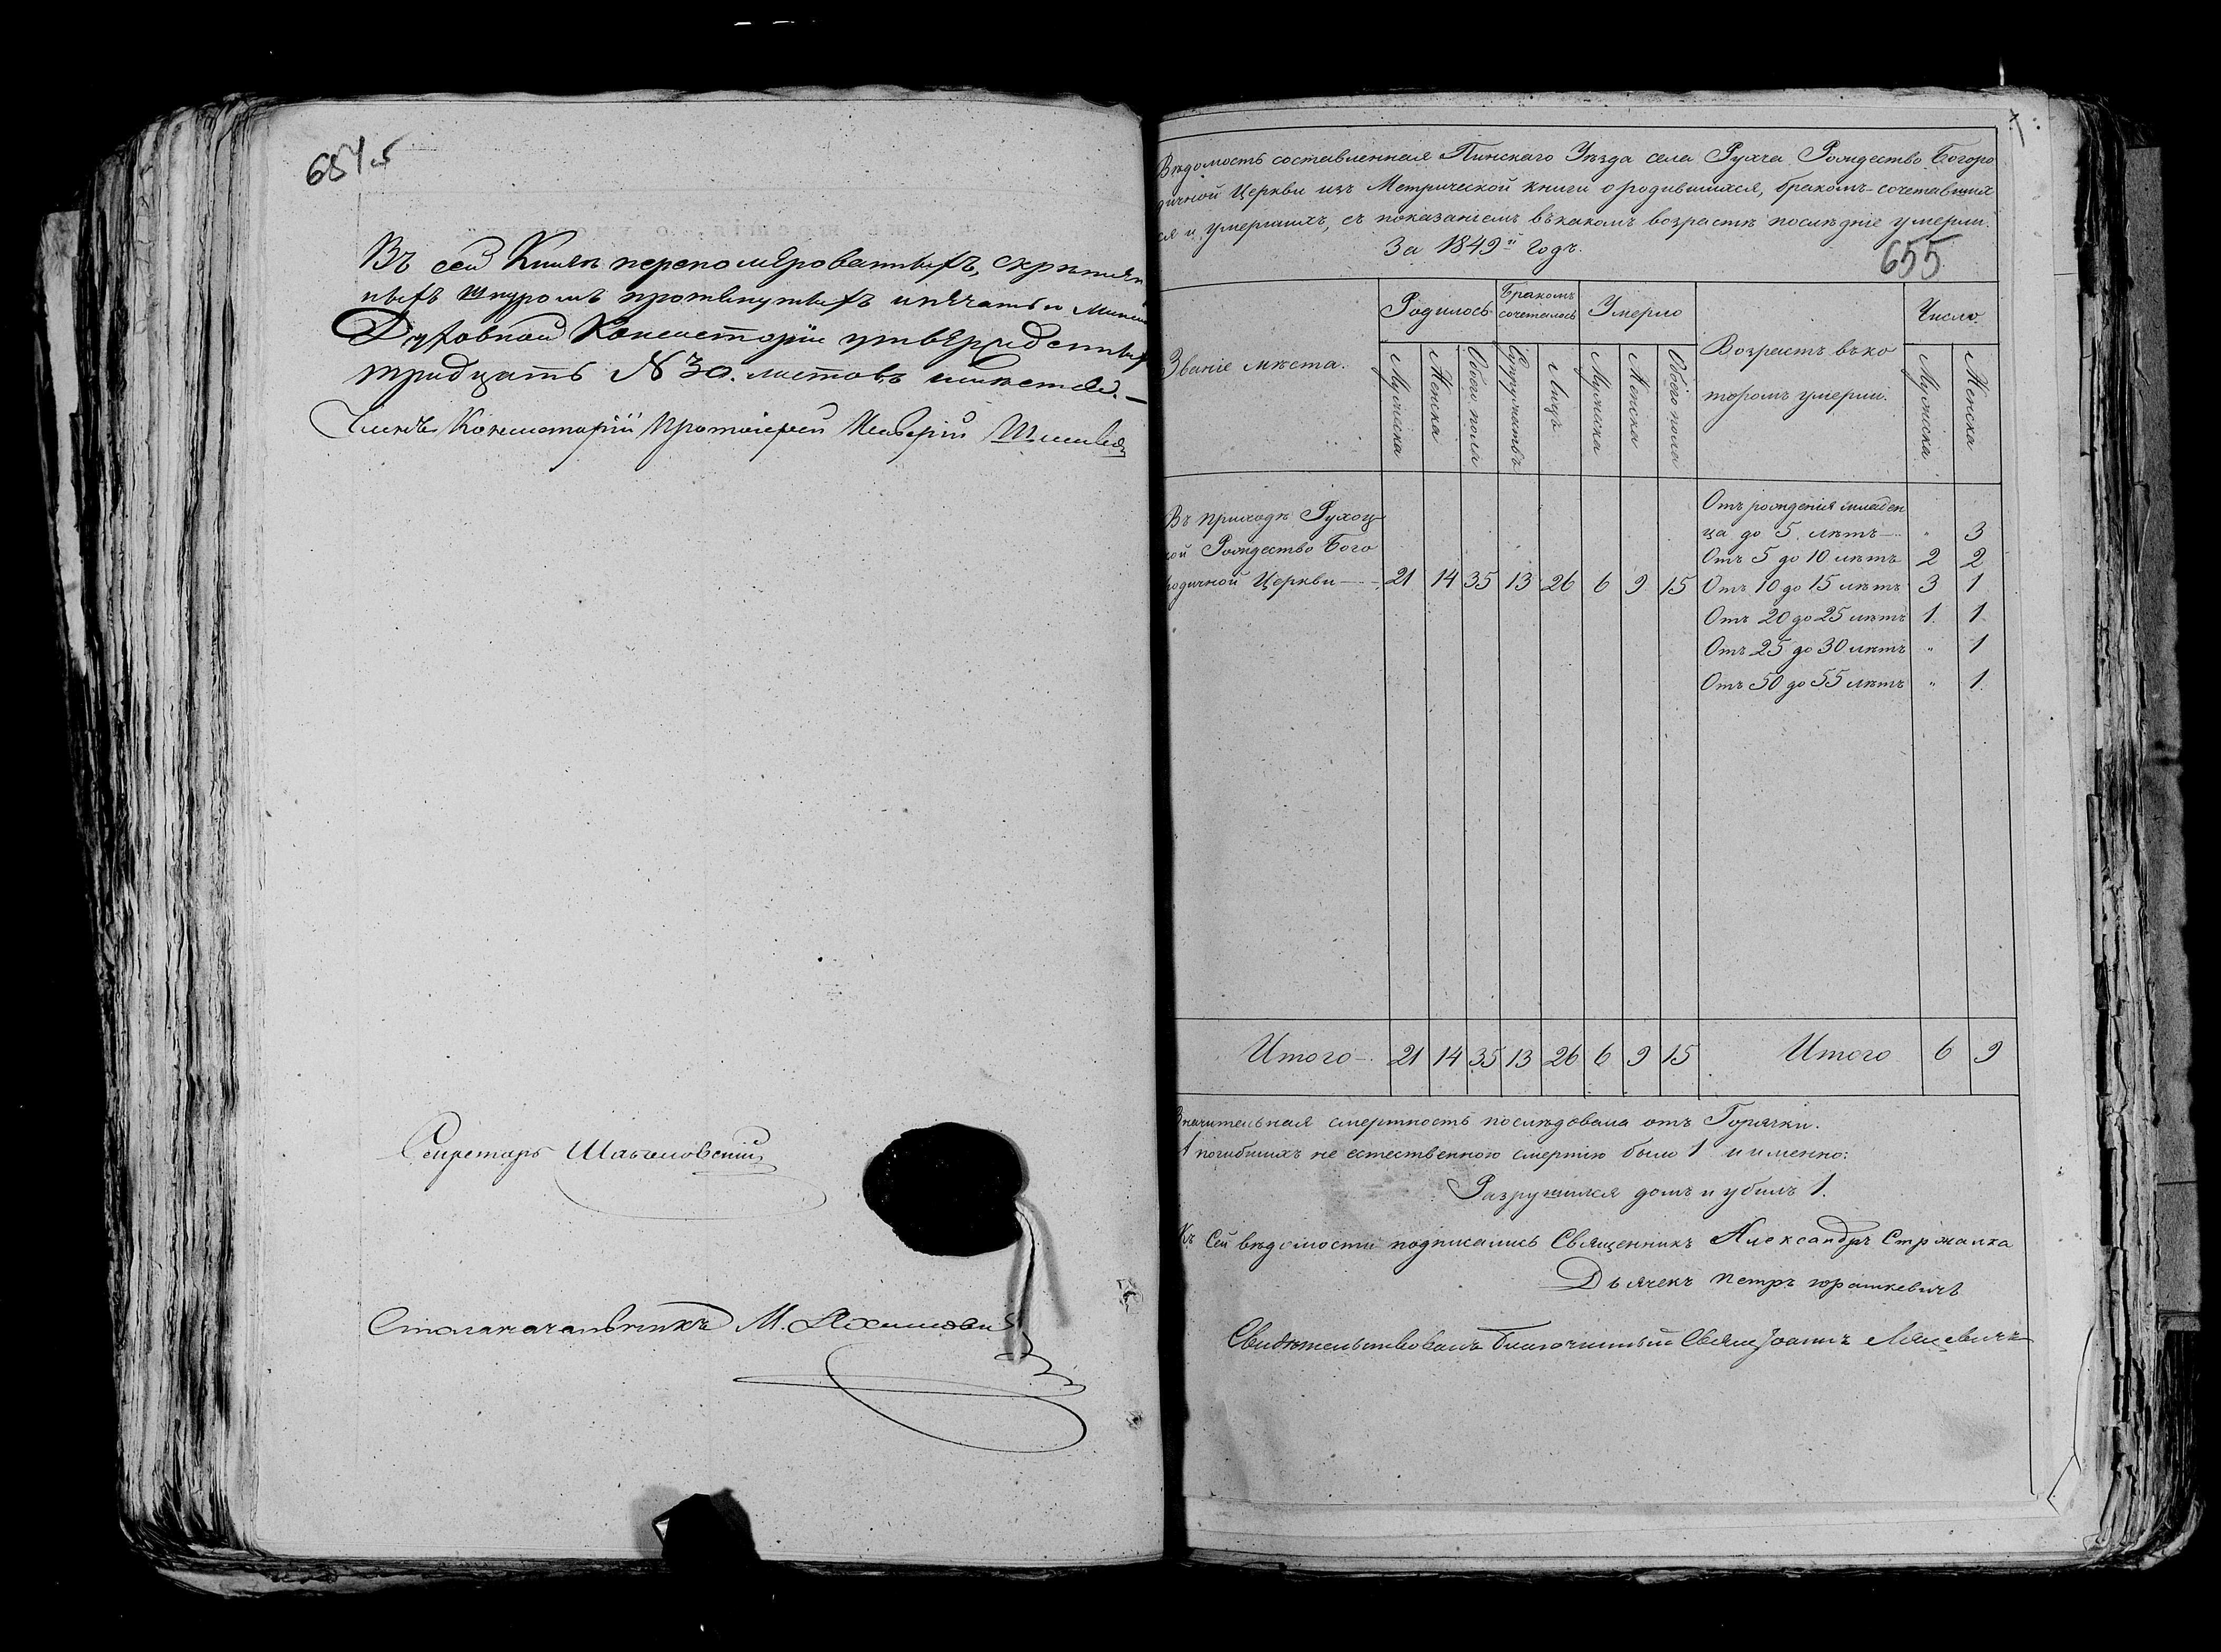 Въ сей Книгѣ переномерованныхъ, скрѣплен
ныхъ шнуромъ протянутыхъ и печатью Минск
Духовной Консисторіи утвержденныхъ
тридцать № 30. листовъ имѣется.—
Членъ Консисторіи Протоіерей
Секретарь
Столоначальникъ М.
Вѣдомость составленная Пинскаго Уѣзда села Рухча Рождество Богоро
дичной Церкви изъ Метрической книги о родившихся, бракомъ сочетавших
ся и умершихъ, съ показаніемъ въ какомъ возрастѣ послѣдніе умерли.
За 1849й Годъ.
655
Званіе мѣста.
Родилось
Бракомъ сочеталось
Умерло
Возрастъ въ ко
торомъ умерли.
Число.
Мужеска
Женска
Обоего пола
Супружествъ
Лицъ
Мужеска
Женска
Обоего пола
Мужеска
Женска
Въ приходѣ Рухоц
кой Рождество Бого
родичной Церкви — 21 14 35 13 26 6 9 15
Отъ рожденія младен
ца до 5 лѣтъ — „ 3
Отъ 5 до 10 лѣтъ 2 2
Отъ 10 до 15 лѣтъ 3 1
Отъ 20 до 25 лѣтъ 1. 1
Отъ 25 до 30 лѣтъ „ 1
Отъ 50 до 55 лѣтъ „ 1.
Итого — 21 14 35 13 26 6 9 15 Итого 6 9
Значительная смертность послѣдовала отъ Горячки.
погибшихъ не естественною смертію было 1 и именно:
Разрушился домъ и убилъ 1.
Къ Сей вѣдомости подписались Священникъ Александръ
Дьячекъ Петръ Юрашкевичъ
Свидѣтельствовалъ Благочинный Свящ Іоаннъ